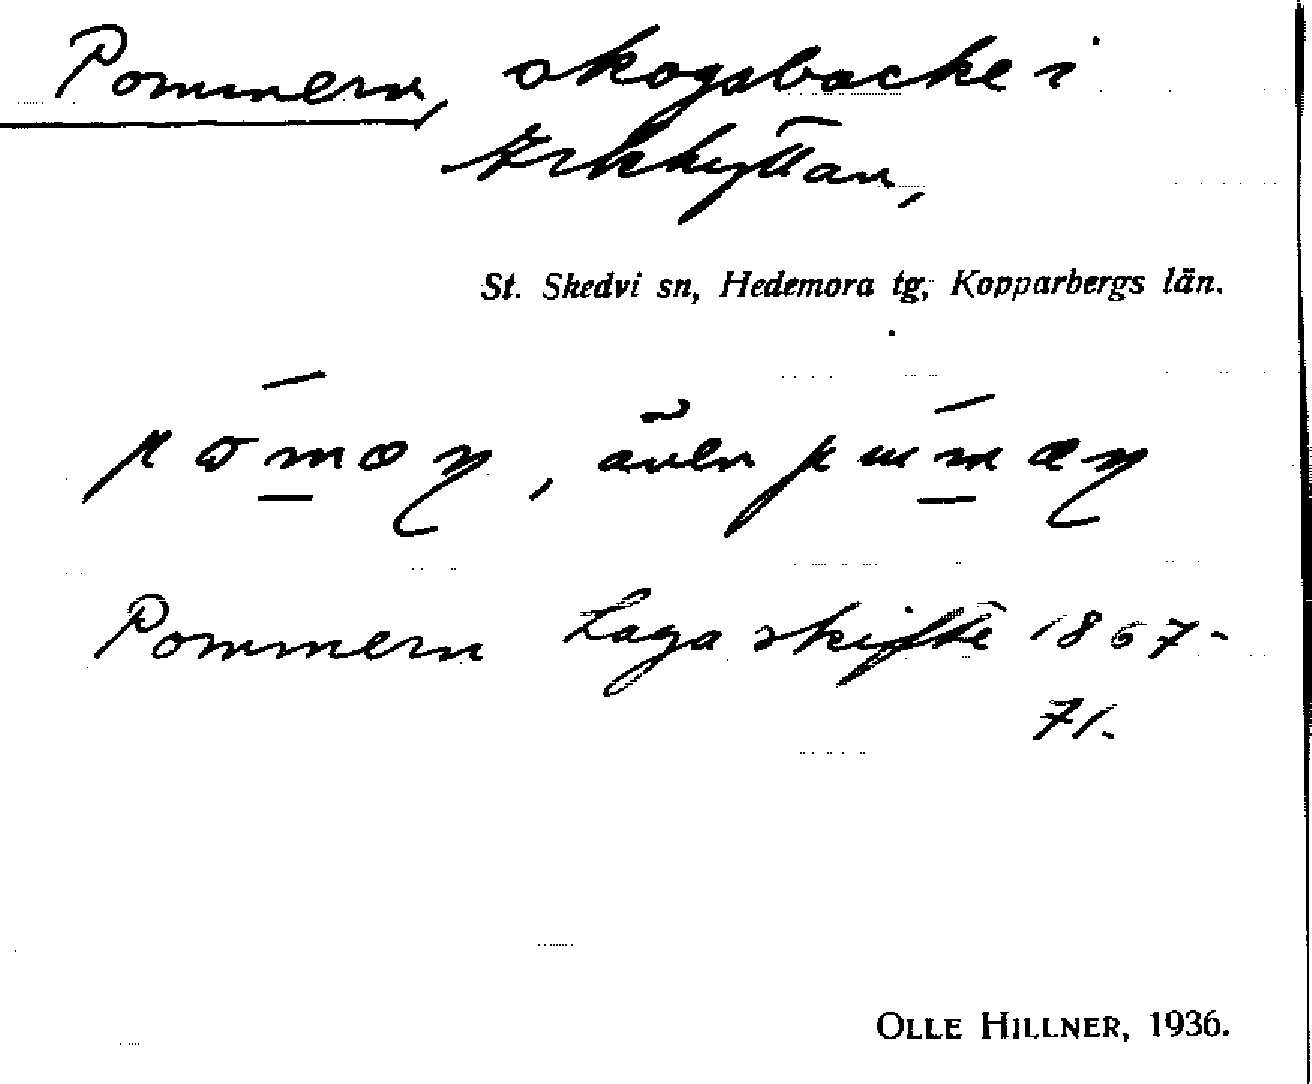 Pommern, skogsbacke i
Arkhyttan,
St. Skedvi sn, Hedemora tg, Kopparbergs län.
, även
Pommern Laga skifte 1867-
71.
OLLE HILLNER, 1936.